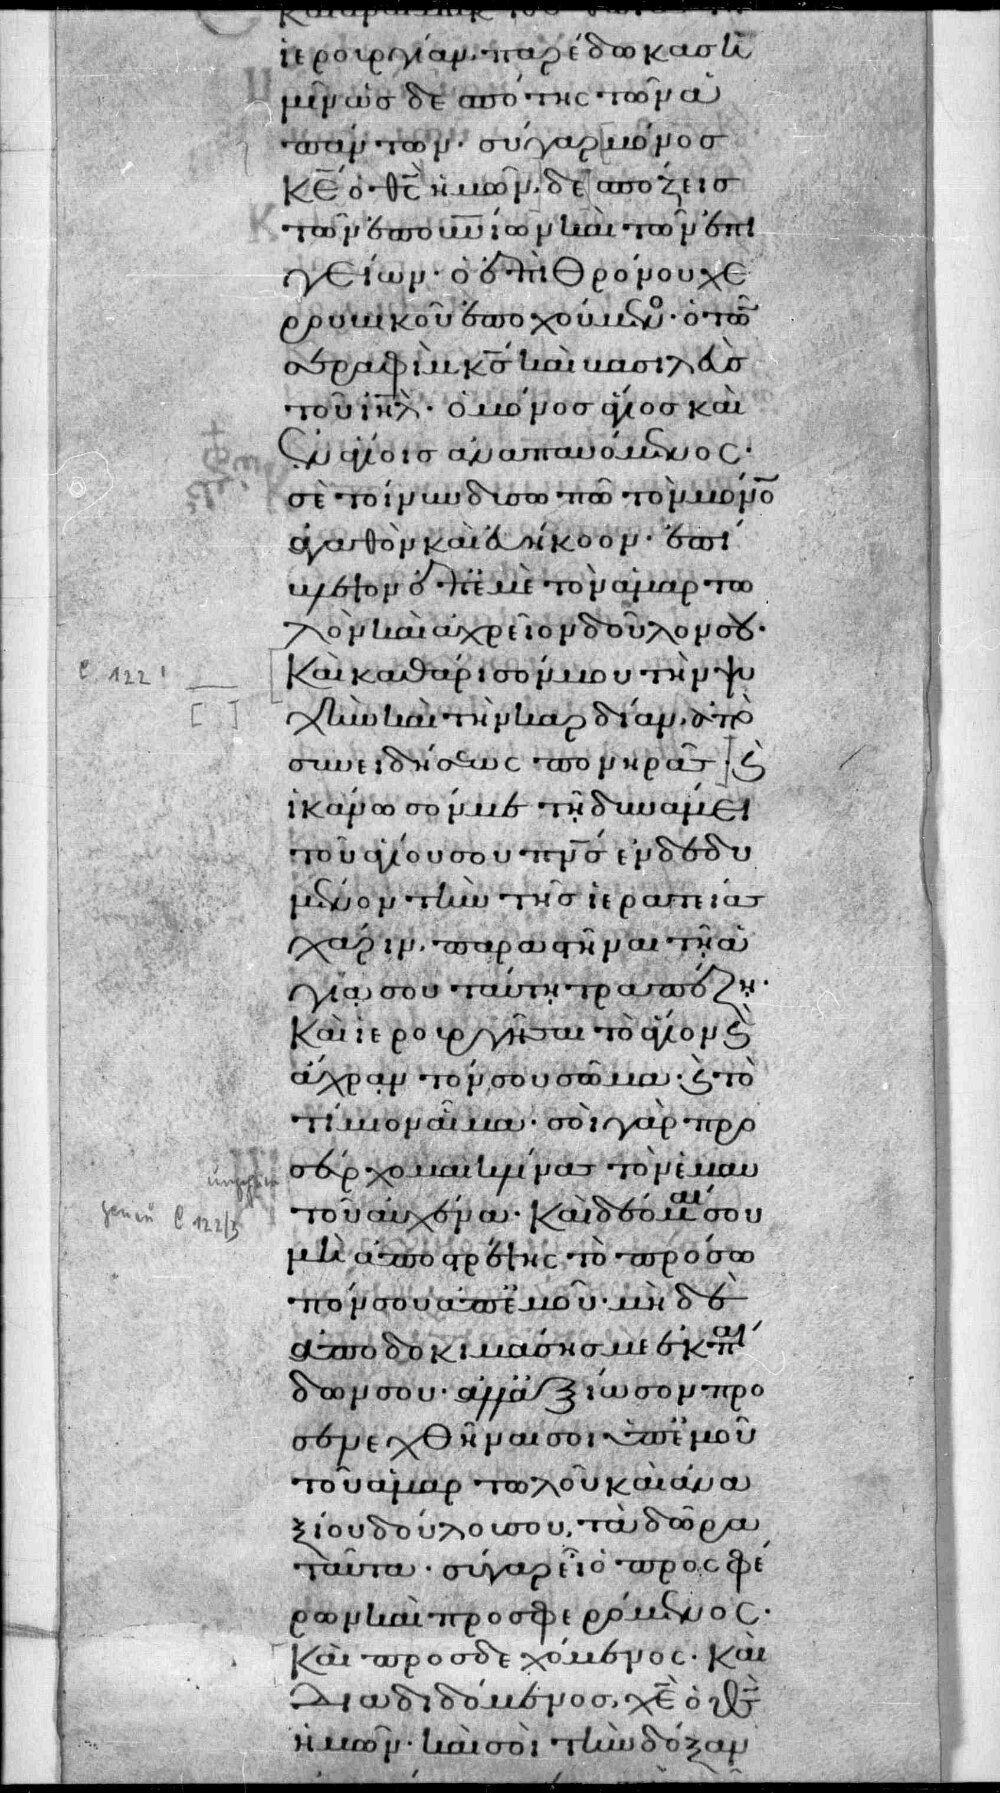 ἱερουργίαν· παρέδωκας ἡ
μῖν ὡς δεσπότης τῶν ἁ
πάντων· σὺ γὰρ μόνος
κε̄ ὁ θς̄ ἡμῶν· δεσπόζεις
τῶν ἐπουνίων καὶ τῶν ἐπι
γείων· ὁ ἐπὶ θρόνου χε
ρουβικοῦ ἐποχούμενος· ὁ τῶν
σεραφὶμ κς̄ καὶ βασιλεὺς
τοῦ ιηλ̄· ὁ μόνος ἅγιος καὶ
ἐν ἁγίοις ἀναπαυόμενος·
σὲ τοίνυν δυσωπῶ τὸν μόνον
ἀγαθὸν καὶ εὐήκοον· ἐπί
βλεψον ἐπ' ἐμὲ τὸν ἁμαρτω
λὸν καὶ ἀχρεῖον δοῦλόν σου·
Καὶ καθάρισόν μου τὴν ψυ
χὴν καὶ τὴν καρδίαν, ἀπὸ
συνειδήσεως πονηρᾶς· ϗ
ἱκάνωσόν με τῇ δυνάμει
τοῦ ἁγίου σου πνς̄ ἐνδεδυ
μένον τὴν τῆς ἱερατείας
χάριν, παραστῆναι τῇ ἁ
γίᾳ σου ταύτῃ τραπέζῃ·
Καὶ ἱερουργῆσαι τὸ ἅγιον ϗ
ἄχραντόν σου σῶμα· ϗ τὸ
τίμιον αἷμα· σοὶ γὰρ προ
σέρχομαι κλίνας τὸν ἐμαυ
τοῦ αὐχένα· Καὶ δέομαί σου
μὴ ἀποστρέψῃς τὸ πρόσω
πόν σου ἀπ' ἐμοῦ· μὴ δὲ
ἀποδοκιμάσῃς με ἐκ παί
δων σου· ἀλλ' ἀξίωσον προ
σενεχθῆναι σοι ὑπ' ἐμοῦ
τοῦ ἁμαρτωλοῦ καὶ ἀνα
ξίου δούλου σου, τὰ δῶρα
ταῦτα· σὺ γὰρ εἶ ὁ προσφέ
ρων καὶ προσφερόμενος·
Καὶ προσδεχόμενος· Καὶ
διαδιδόμενος, χε̄ ὁ θς̄
ἡμῶν· καὶ σοὶ τὴν δόξαν
C 122¹
[ ]
genau C 122/3